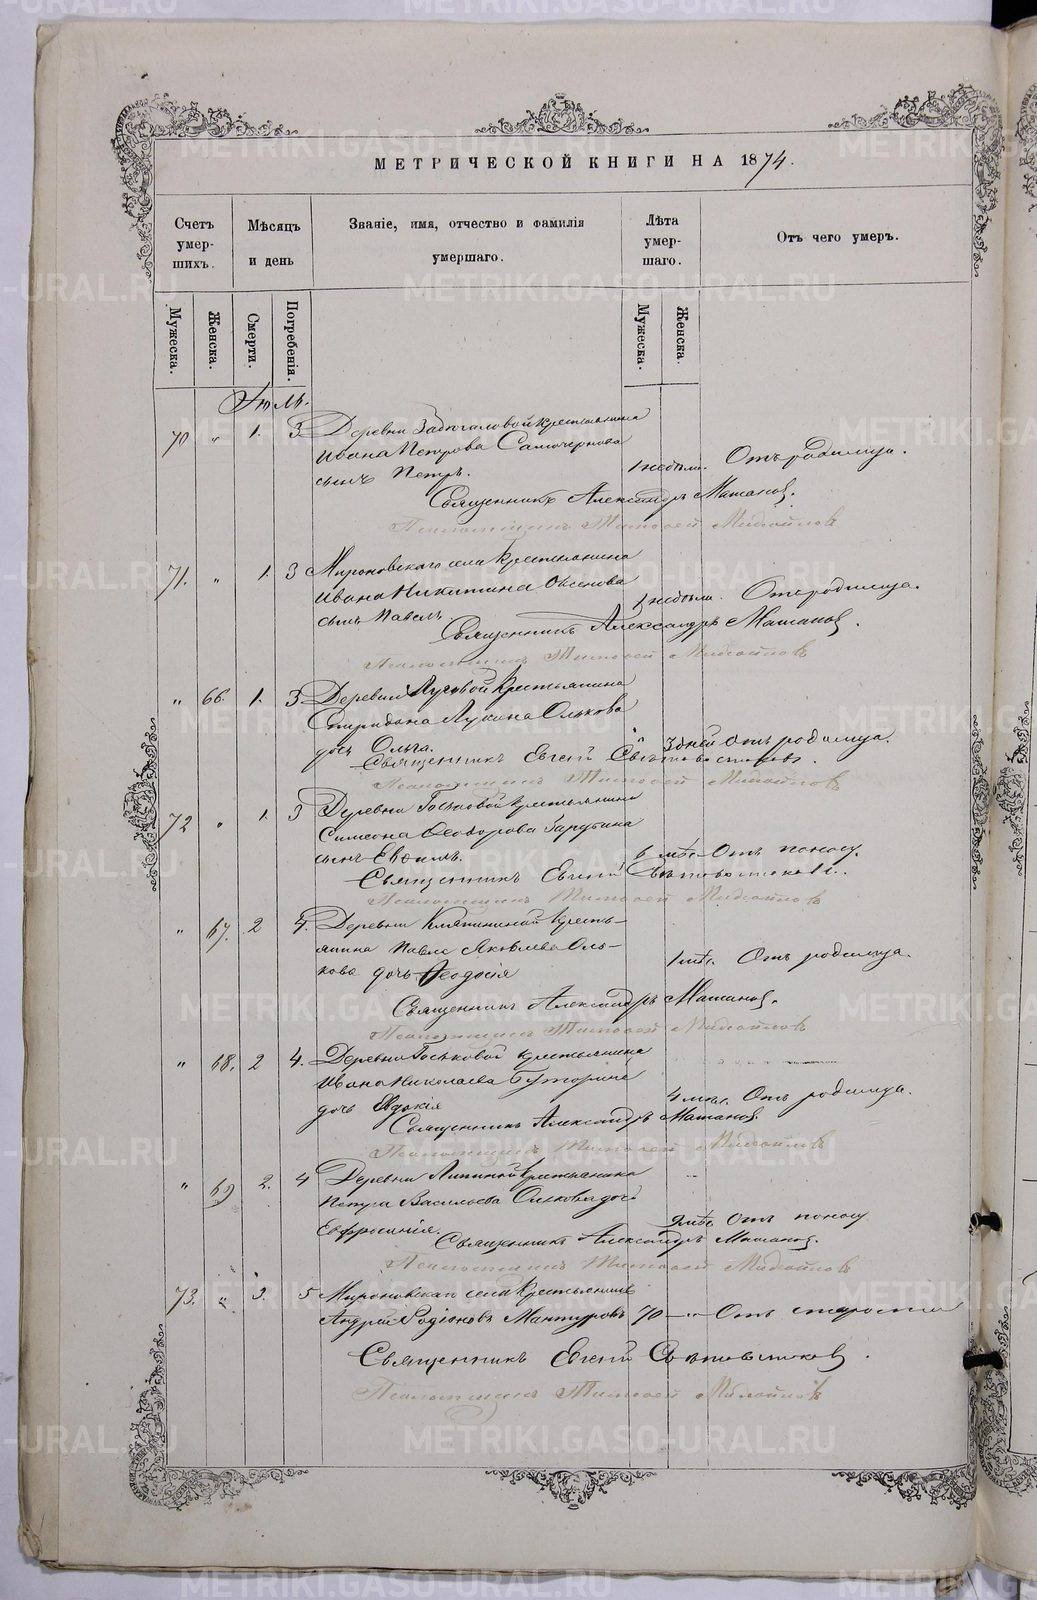 МЕТРИЧЕСКОЙ КНИГИ НА 1874.
Счетъ умер- шихъ.
Мѣсяцъ и день
Званіе, имя, отчество и фамилія умершаго.
Лѣта умер- шаго.
Отъ чего умеръ.
Мужеска. Женска. Смерти. Погребенія. Мужеска. Женска.
Іюль.
70 " 1. 3 Деревни крестьянина
Ивана Петрова Самочернова
сынъ Петръ. 1 недѣли. Отъ родимца.
Священникъ Александръ
Псаломщикъ Тимофей Михайловъ
71. " 1. 3 Мироновскаго села крестьянина
Ивана Никитина
сынъ Павелъ 1 недѣли. Отъ родимца.
Священникъ Александръ
Псаломщикъ Тимофей Михайловъ
" 66. 1. 3 Деревни Луговой крестьянина
Спиридона Лукина Олькова
дочь Ольга. 3 дней Отъ родимца.
Священникъ Евгеній Свѣтовостоковъ.
Псаломщикъ Тимофей Михайловъ
72 " 1. 3 Деревни Госьковой крестьянина
Симеона Ѳеодорова Зарубина
сынъ Евѳимъ. 6 мѣс. Отъ поносу.
Священникъ Евгеній Свѣтовостоковъ.
Псаломщикъ Тимофей Михайловъ
" 67. 2 4. Деревни кресть-
янина Павла Яковлева Оль-
кова дочь Ѳеодосія 1 мѣс. Отъ родимца.
Священникъ Александръ
Псаломщикъ Тимофей Михайловъ
" 68. 2 4. Деревни Госьковой крестьянина
Ивана Николаева Буторина
дочь Евдокія 4 мѣс. Отъ родимца.
Священникъ Александръ
Псаломщикъ Тимофей Михайловъ
" 69 2. 4 Деревни Липиной крестьянина
Петра Васильева Олькова дочь
Евфросинія. 9 мѣс. Отъ поносу
Священникъ Александръ
Псаломщикъ Тимофей Михайловъ
73. " 3. 5 Мироновскаго села крестьянинъ
Андрей Родіоновъ Мантуровъ 70 — " Отъ старости
Священникъ Евгеній Свѣтовостоковъ.
Псаломщикъ Тимофей Михайловъ
METRIKI.GASO-URAL.RU